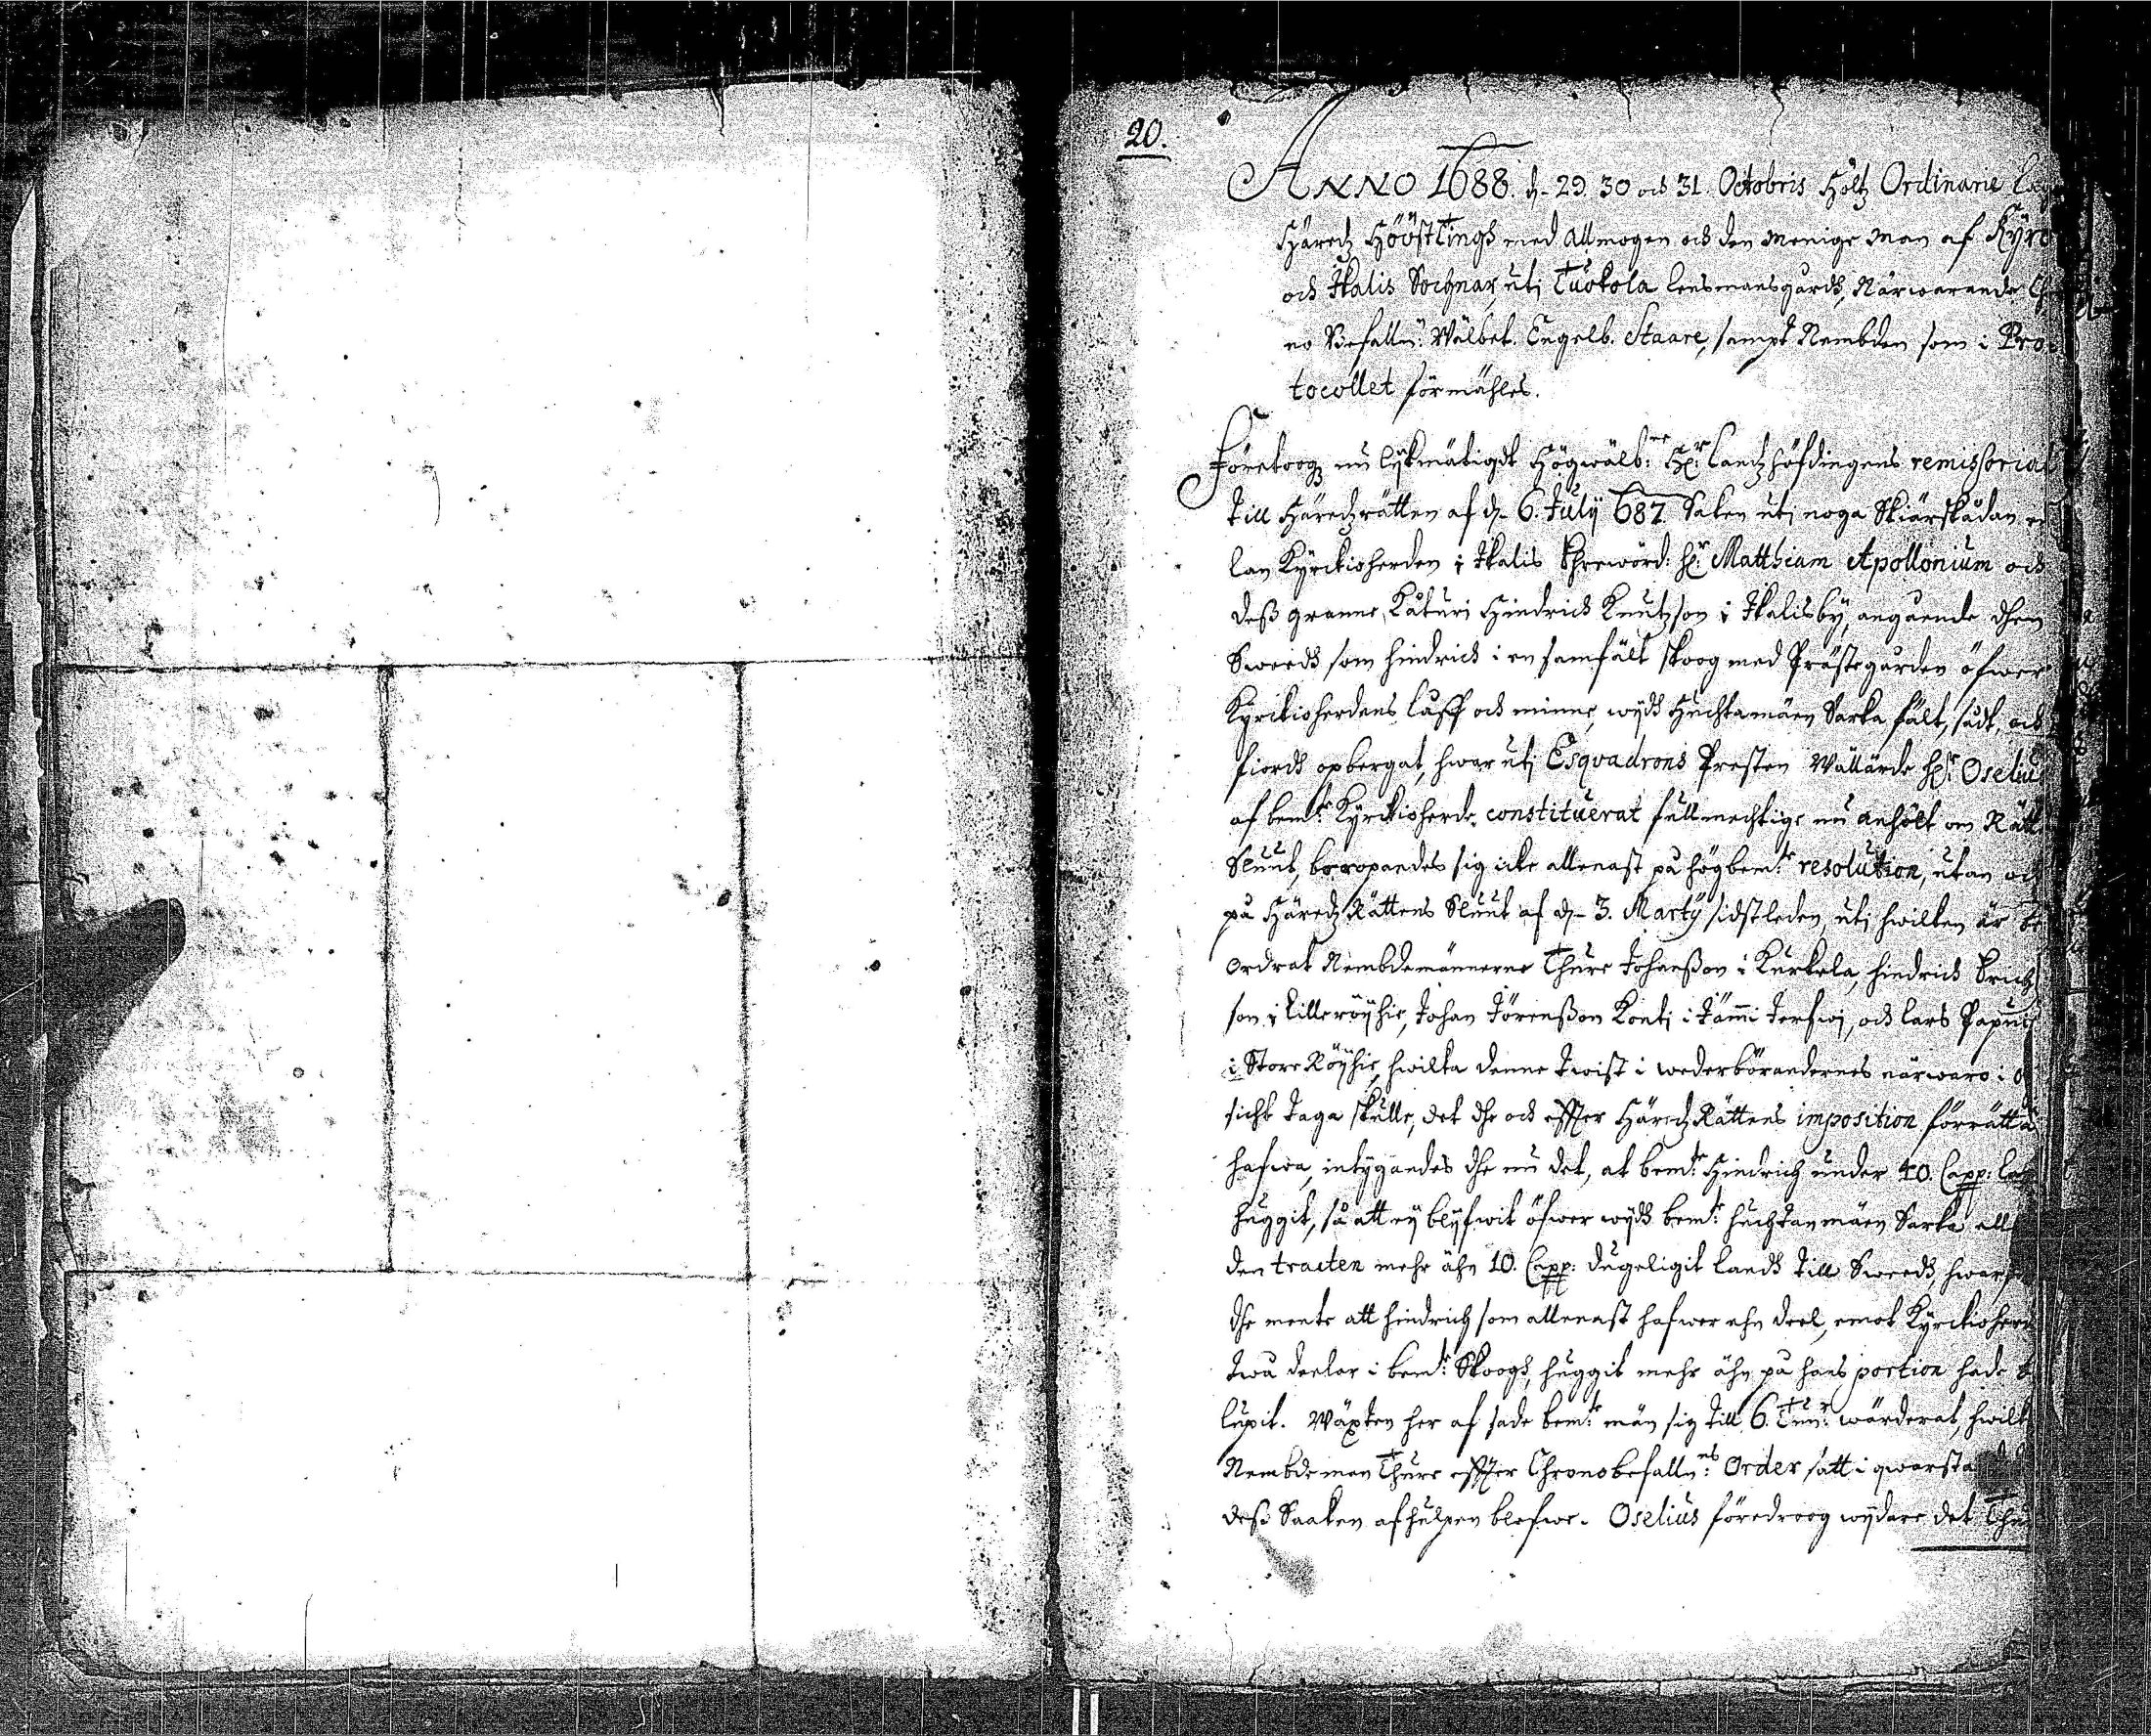 20.
ANNO 1688. d. 29. 30 och 31. Octobris höltz Ordinarie
Häredz Hööst Tingh med Allmogen och den menige Man af Kyro
och Ikalis Sochnar, uti Tuokola Lensmansgårdh, Närwarande
no Befalln: Wälbet. Engelb. Staare, sampt Nembden som i Pro-
tocollet förmähles.
Företoogz nu lykmätigdt Högwälb:ne H:r Landzhöfdingens remissorial
till Häredzrätten af d. 6. July 687. Saken uti noga Skiärskådan
lan Kyrckioherden i Ikalis Ehrewörd: H:r Matthiam Apollonium och
deß granne, Kuturi Hindrich Knutzson i Ikalisby, angående dhen
Sweedh som Hindrich i en samfält skoog med Prästegården öfwer
Kyrckioherdens laff och minne, wydh Huchtamäen Sarka fält, sådt, och
fiordh opbergat, hwar uti Esqvadrons Presten Wällärde H:r Oselius
af bem:te Kyrckioherde constituerat fullmechtige nu anhölt om Rätt
Sluut, beropandes sig icke allenast på högbem:te resolution, utan och
på Häredz Rättens Sluut af d. 3. Marty sidstleden, uti hwilken är be
ordrat Nembdemännerne Thure Johanßon i Kurkela, Hindrich Erich
son i Lilleröyhie, Johan Jörenßon Konti i Jämmi Jerfwi, och Lars Papuis
i Store Röyhie, hwilka denne twist i wederbörandernes närwaro i
sicht taga skulle, det dhe och effter Häredz Rättens imposition förrätta
hafwa, intygandes dhe nu det, at bem:te Hindrich under 40. Capp:
huggit, så att ey blyfwit öfwer wydh bem:te Huchtanmäen Sarka
den tracten mehr ähn 10. Capp: dugeligit landh till Sweedh,
dhe mente att Hindrich som allenast hafwer ehn deel, emot Kyrckioher
twå deelar i bem:te Skoogh, huggit mehr ähn på hans portion hade be
lupit. Wäxten her af sade bem:te män sig till 6. Tun:r wärderat,
Nembdeman Thure effter Chronobefalln:ns Order satt i qwarsta
deß Saaken afhulpen blefwe. Oselius föredroog wydare det